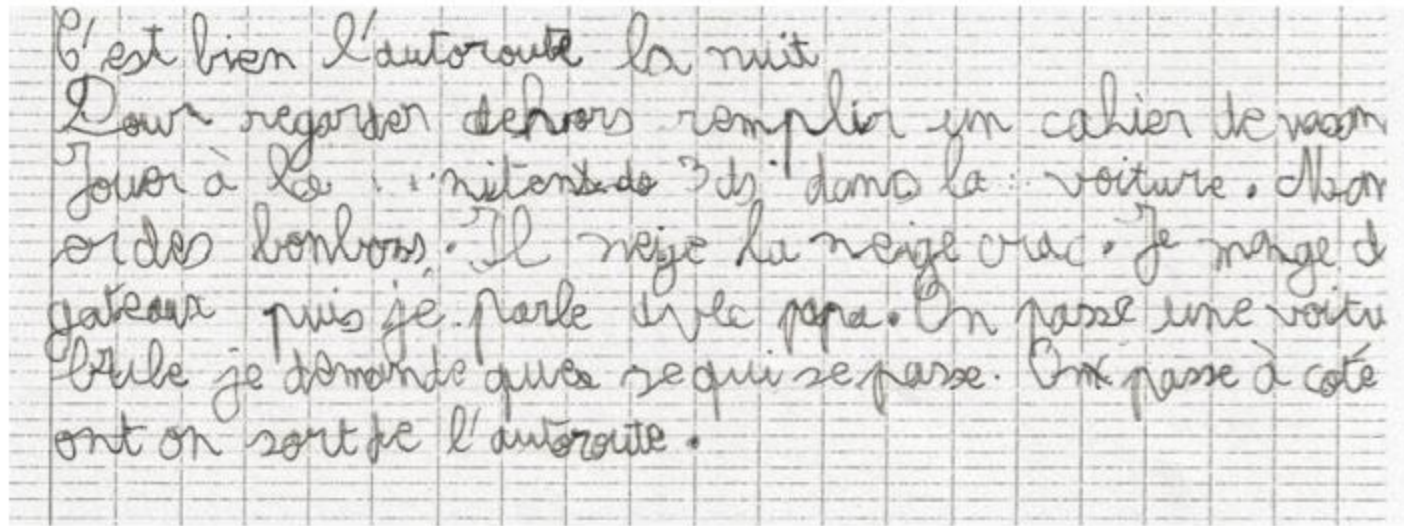 C'est bien l'autoroute la nuit
Pour regarder dehors remplir un cahier de
Jouer à la nitendo 3ds dans la voiture.
des bonbons. Il neige la neige crac. Je mange d
gateaux puis je parle avec papa. On passe une voitu
brule je demande ques se qui se passe. On passe à coté
ont on sort de l'autoroute.